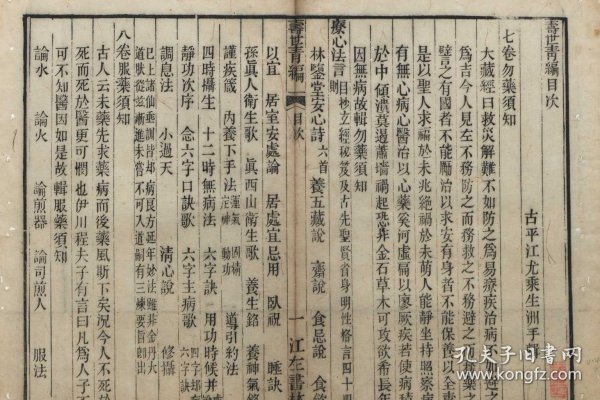 壽世青編目次
古平江尤乘生洲手
七卷勿藥須知
大藏經曰救災解難不如防之爲易療疾治病
爲吉今人見左不務防之而務救之不務避之
譬之有國者不能勵治以求安有身者不能保養以全
是以聖人求福於未兆絕禍於未萌人能靜坐持照察病
有無心病心醫治以心藥奚河虛扁以廖厥疾若使病積
於中傾潰莫遏蕭墻禍起恐非金石草木可攻欲希長年
因無病故輯勿藥須知
療心法言
林鑒堂安心詩六首 養五藏說 齋說 食忌說 食飲
壽世青編 目次 一 江左書林
以宜 居室安處論 居處宜忌用 臥祝 睡訣
孫眞人衛生歌 眞西山衛生歌 養生銘 養神氣銘
謹疾箴 內養下手法 導引約法
四時攝生 十二時無病法 六字訣 用功時候
靜功次序 念六字口訣歌 六字主病歌
調息法 小週天 清心說 修攝
八卷服藥須知
古人云未藥先求藥病而後藥風斯下矣況今人不死於
死而死於醫更可憫也伊川程夫子有言曰凡爲人子不
可不知醫因如是故輯服藥須知
論水 論火 論煎器 論司煎人 服法
孔夫子旧书网
kongfz.com